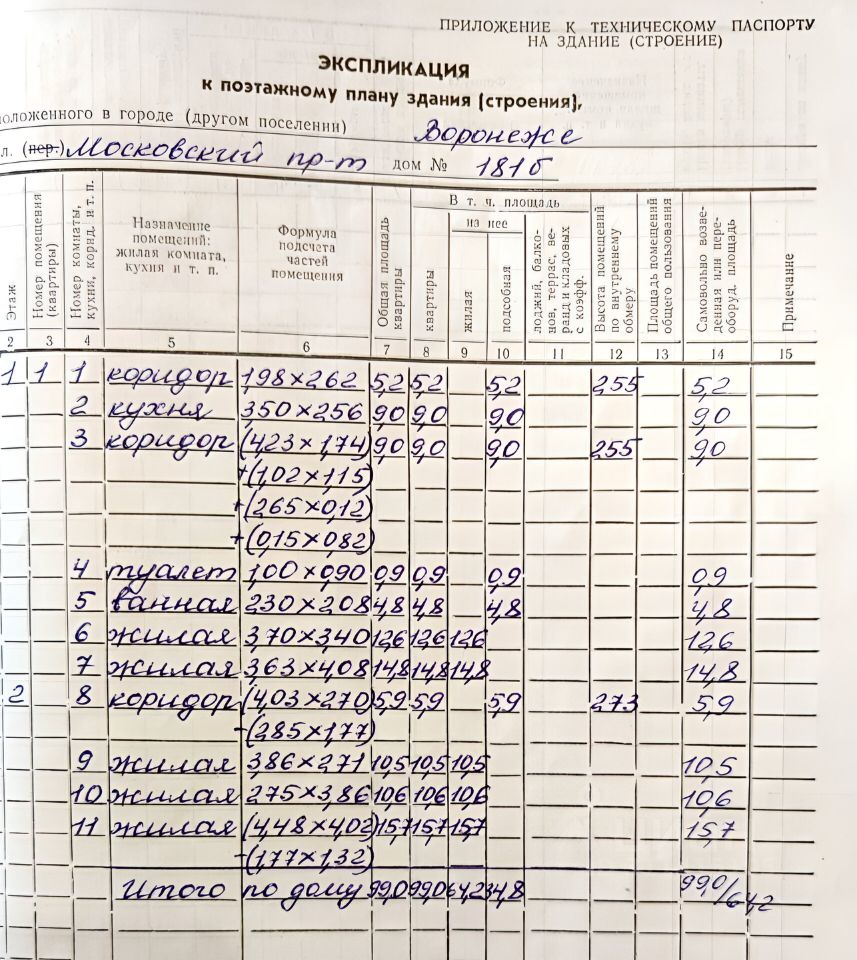 ПРИЛОЖЕНИЕ К ТЕХНИЧЕСКОМУ ПАСПОРТУ
НА ЗДАНИЕ (СТРОЕНИЕ)
ЭКСПЛИКАЦИЯ
к поэтажному плану здания (строения),
оложенного в городе (другом поселении) Воронеже
л. (пер.) Московский пр-т дом № 181б
Этаж
Номер помещения (квартиры)
Номер комнаты, кухни, корид. и т. п.
Назначение помещений: жилая комната, кухня и т. п.
Формула подсчета частей помещения
Общая площадь квартиры
В т. ч. площадь
квартиры
из нее
жилая
подсобная
лоджий, балконов, террас, веранд и кладовых с коэфф.
Высота помещений по внутреннему обмеру
Площадь помещений общего пользования
Самовольно возведенная или переоборуд. площадь
Примечание
2 3 4 5 6 7 8 9 10 11 12 13 14 15
1 1 1 коридор 1,98×2,62 5,2 5,2 5,2 2,55 5,2
2 кухня 3,50×2,56 9,0 9,0 9,0 9,0
3 коридор (4,23×1,74) 9,0 9,0 9,0 2,55 9,0
+(1,02×1,15)
+(2,65×0,12)
+(0,15×0,82)
4 туалет 1,00×0,90 0,9 0,9 0,9 0,9
5 ванная 2,30×2,08 4,8 4,8 4,8 4,8
6 жилая 3,70×3,40 12,6 12,6 12,6 12,6
7 жилая 3,63×4,08 14,8 14,8 14,8 14,8
2 8 коридор (4,03×2,70) 5,9 5,9 5,9 2,73 5,9
-(2,85×1,77)
9 жилая 3,86×2,71 10,5 10,5 10,5 10,5
10 жилая 2,75×3,86 10,6 10,6 10,6 10,6
11 жилая (4,48×4,02) 15,7 15,7 15,7 15,7
-(1,77×1,32)
Итого по дому 99,0 99,0 64,2 34,8 99,0/64,2